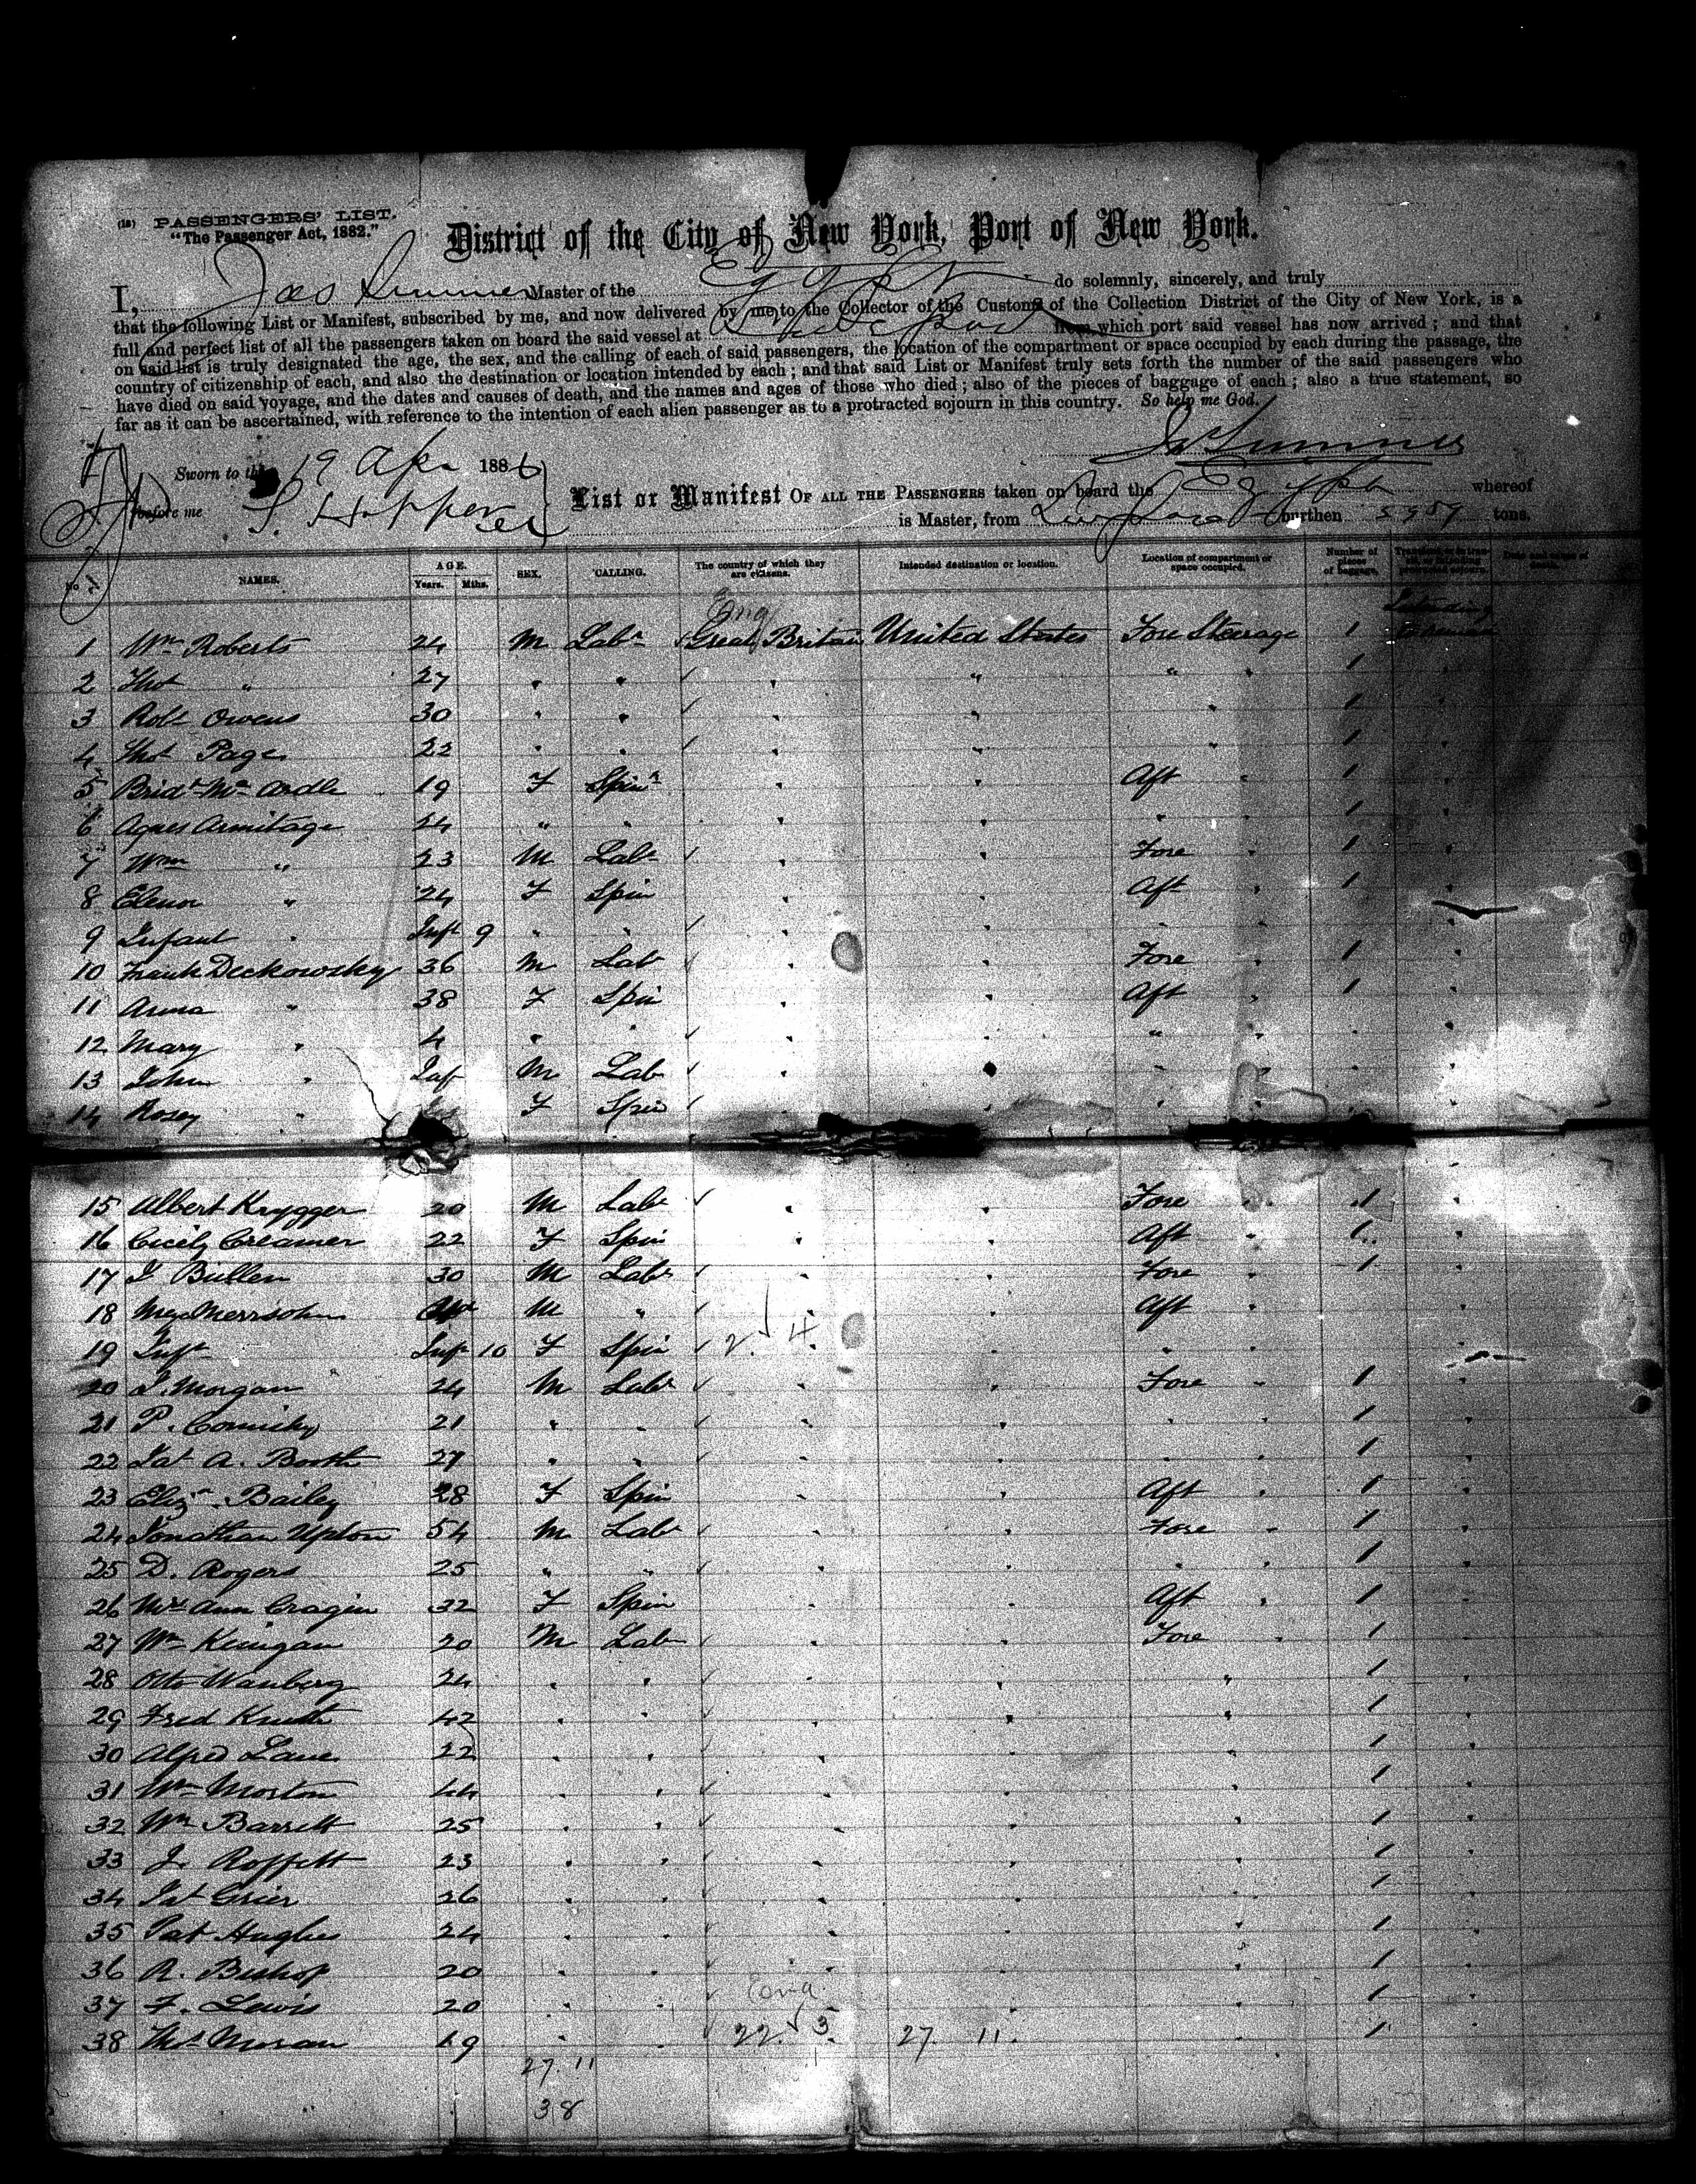 (18) PASSENGERS' LIST.
"The Passenger Act, 1882."
District of the City of New York, Port of New York.
I, Jas Sumner Master of the Egypt do solemnly, sincerely, and truly
that the following List or Manifest, subscribed by me, and now delivered by me to the Collector of the Customs of the Collection District of the City of New York, is a
full and perfect list of all the passengers taken on board the said vessel at Liverpool from which port said vessel has now arrived; and that
on said list is truly designated the age, the sex, and the calling of each of said passengers, the location of the compartment or space occupied by each during the passage, the
country of citizenship of each, and also the destination or location intended by each; and that said List or Manifest truly sets forth the number of the said passengers who
have died on said voyage, and the dates and causes of death, and the names and ages of those who died; also of the pieces of baggage of each; also a true statement, so
far as it can be ascertained, with reference to the intention of each alien passenger as to a protracted sojourn in this country. So help me God.
Jas Sumner
Sworn to this 19 Apr 1886
before me S. Hopper
List or Manifest OF ALL THE PASSENGERS taken on board the Egypt whereof
is Master, from Liverpool burthen tons.
No NAMES. AGE. Years. Mths. SEX. CALLING. The country of which they are citizens. Intended destination or location. Location of compartment or space occupied. Number of pieces of baggage. Date and cause of death.
Eng
Intending
1 Wm Roberts 24 M Labr Great Britain United States Fore Steerage 1 to remain
2 Thos " 27 " " " " " " 1 "
3 Robt Owens 30 " " " " " 1 "
4 Thos Page 22 " " " " " 1 "
5 Bridt McArdle 19 F Spinr " " Aft " 1 "
6 Agnes Armitage 24 " " " " " " 1 "
7 Wm " 23 M Labr " " Fore " 1 "
8 Elenor " 24 F Spin " " Aft " 1 "
9 Infant " Inft 9 " " " " " " "
10 Frank Deckowsky 36 M Lab " " Fore " 1 "
11 Anna " 38 F Spin " " Aft " 1 "
12 Mary " 4 " " " " " " "
13 John " Inf M Lab " " " " "
14 Rosey " F Spin " " " " "
15 Albert Krygger 20 M Labr " " Fore " 1 "
16 Cicely Creamer 22 F Spin " " Aft " 1 "
17 J Bullen 30 M Labr " " Fore " 1 "
18 M " " " Aft " "
19 Inft Inf 10 F Spin 2 4 " " " "
20 J. Morgan 24 M Labr " " Fore " 1 "
21 P. 21 " " " " " " 1 "
22 A. Booth 27 " " " " " " 1 "
23 Eliz Bailey 28 F Spin " " Aft " 1 "
24 Jonathan Upton 54 M Labr " " Fore " 1 "
25 D. Rogers 25 " " " " " " 1 "
26 Mrs Ann Cragin 32 F Spin " " Aft " 1 "
27 Wm Kinigan 20 M Lab " " Fore " 1 "
28 Otto Wanberg 24 " " " " " 1 "
29 Fred 42 " " " " " 1 "
30 Alfred Lane 22 " " " " " 1 "
31 Wm Morton 44 " " " " " 1 "
32 Wm Barrett 25 " " " " " 1 "
33 J. Roffett 23 " " " " " 1 "
34 Grier 26 " " " " " 1 "
35 Pat Hughes 24 " " " " " 1 "
36 R. Bishop 20 " " " " " 1 "
37 F. Lewis 20 " " " " " 1 "
38 Thos Moran 19 " " 22. 5. 27 11. " 1 "
27. 11
38